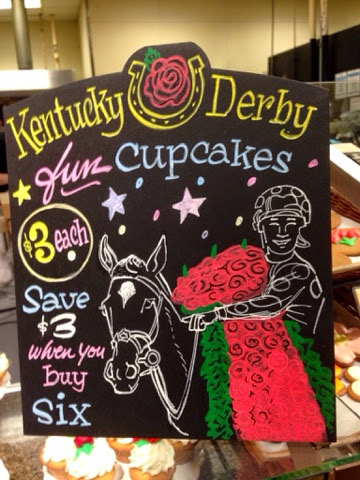 Kentucky Derby
fun cupcakes
$3 each
Save
$3
when you
buy
Six